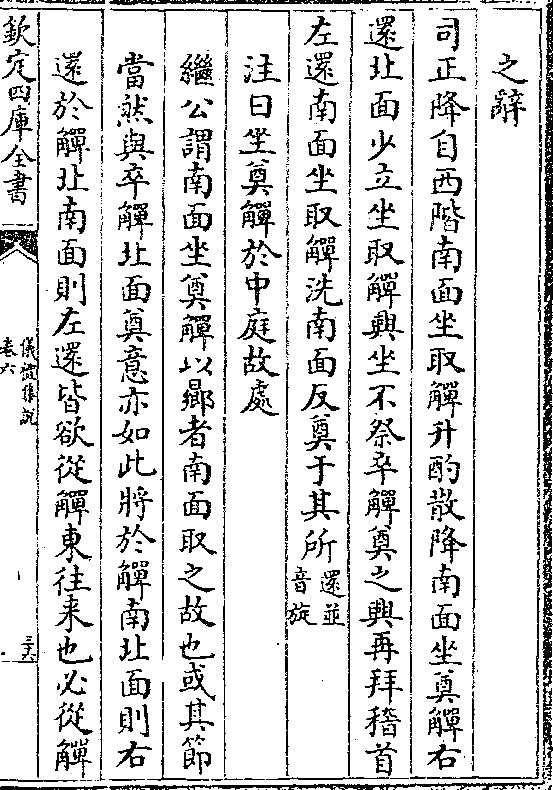 之辭
司正降自西階南面坐取觶升酌散降南面坐奠觶右
還北面少立坐取觶興坐不祭卒觶奠之興再拜稽首
左還南面坐取觶洗南面反奠于其所還並音旋
注曰坐奠觶於中庭故處
繼公謂南面坐奠觶以鄉者南面取之故也或其節
當然與卒觶北面奠意亦如此將於觶南北面則右
還於觶北南面則左還皆欲從觶東往来也必從觶
欽定四庫全書
儀禮集說
卷六
三六